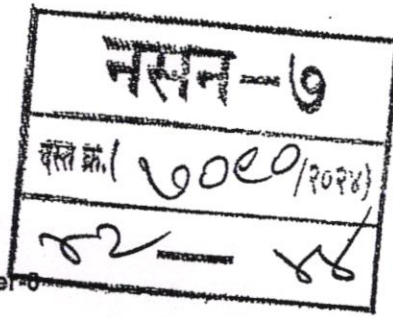 नसन-७
दस्त क्र.( ७०९०/२०२४)
४२ — ४४